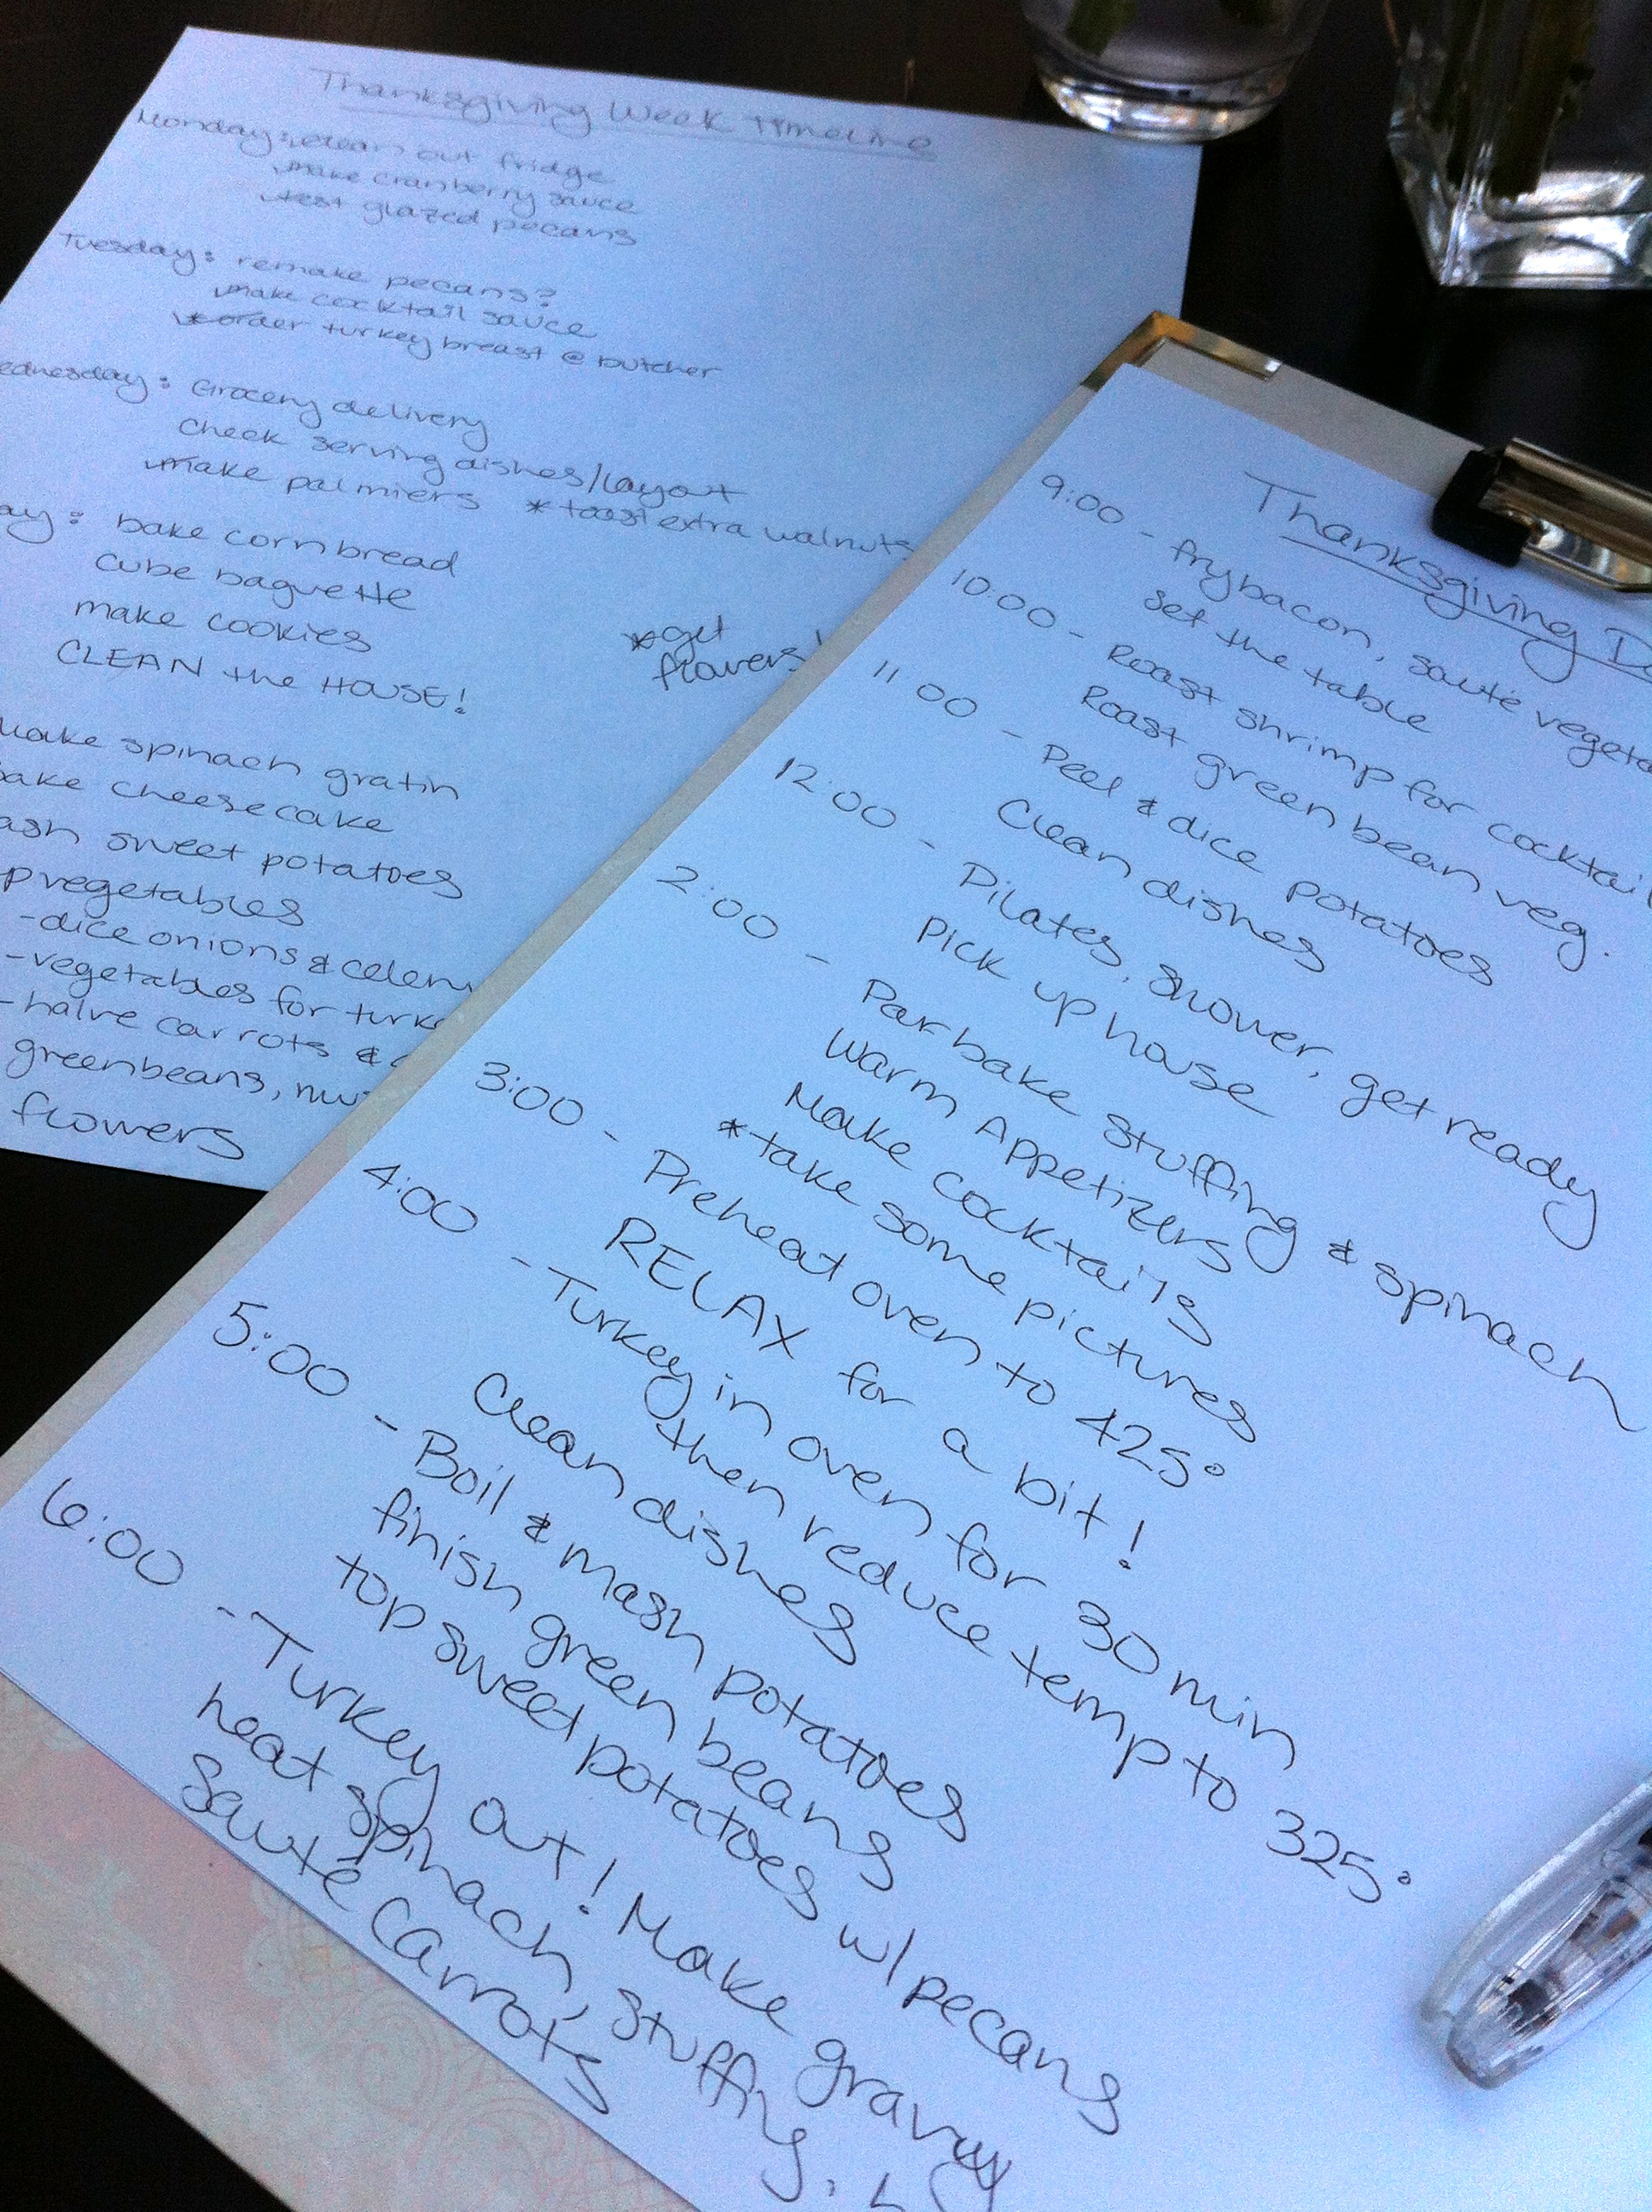 Thanksgiving Week Timeline
Monday: clean out fridge
make cranberry sauce
test glazed pecans
Tuesday: remake pecans?
make cocktail sauce
*order turkey breast @ butcher
ednesday: Grocery delivery
check serving dishes/layout
make palmiers *toast extra walnuts
ay: bake cornbread
cube baguette
make cookies
CLEAN the HOUSE!
*get
flowers!
Make spinach gratin
ake cheesecake
ash sweet potatoes
p vegetables
-dice onions & celery
-vegetables for turke
-halve carrots &
greenbeans,
flowers
Thanksgiving D
9:00 - fry bacon, sauté vegeta
set the table
10:00 - Roast shrimp for cocktail
Roast green bean veg.
11 00 - Peel & dice potatoes
Clean dishes
12:00 - Pilates, shower, get ready
Pick up house
2:00 - Par bake stuffing & spinach
Warm Appetizers
Make cocktails
*take some pictures
3:00 - Preheat oven to 425°
RELAX for a bit!
4:00 - Turkey in oven for 30 min
then reduce temp to 325°
Clean dishes
5:00 - Boil & mash potatoes
finish green beans
top sweet potatoes w/ pecans
6:00 - Turkey out! Make gravy
heat spinach, stuffing,
Sauté carrots